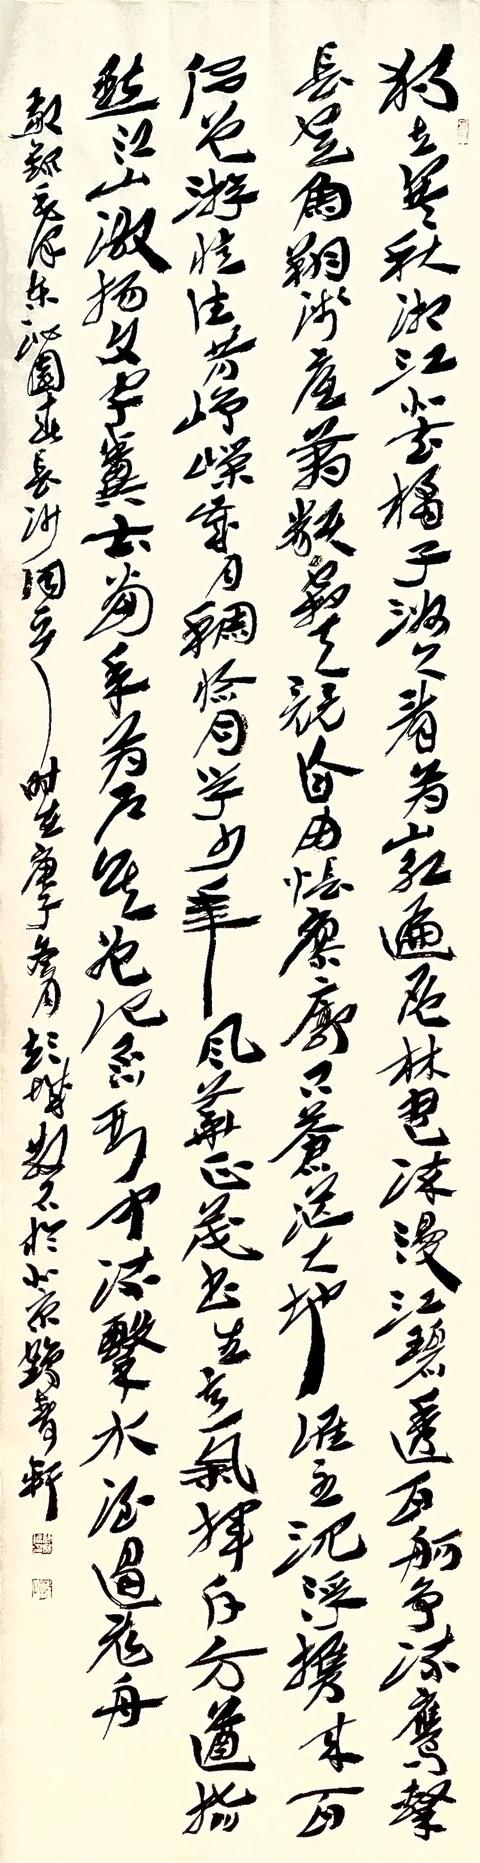 獨立寒秋湘江北去橘子洲頭看萬山紅遍層林盡染漫江碧透百舸爭流鷹擊
長空魚翔淺底萬類霜天競自由悵寥廓問蒼茫大地誰主沉浮攜來百
侶曾游憶往昔崢嶸歲月稠恰同學少年風華正茂書生意氣揮斥方遒指
點江山激揚文字糞土當年萬戶侯曾記否到中流擊水浪遏飛舟
敬錄毛澤東沁園春長沙詞 時在庚子冬月彭城散石於北京青軒